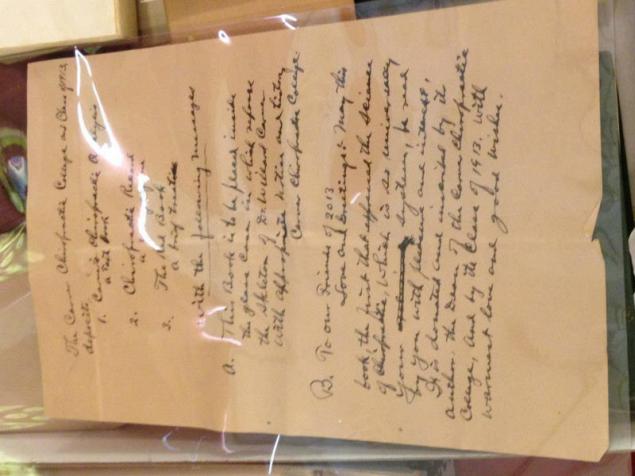 The Carver Chiropractic College and Class of 1913,
deposits
1. Carver's Chiropractic Analysis
a Text Book
2. Chiropractic Record
a Magazine
3. The Red Book
a brief treatise
with the following messages
A. This Book is to be placed inside
the glass case in which repose
the Skeleton of Dr. Willard Carver
with appropriate notice and history
Carver Chiropractic College.
B. To our Friends of 2013
Love and Greetings: May this
book the first that affirmed the science
of Chiropractic, which is so universally
your system, be read
by you with pleasure and interest,
It is donated and inscribed by its
author, the Dean of the Carver Chiropractic
College, and by the Class of 1913, with
warmest love and good wishes.